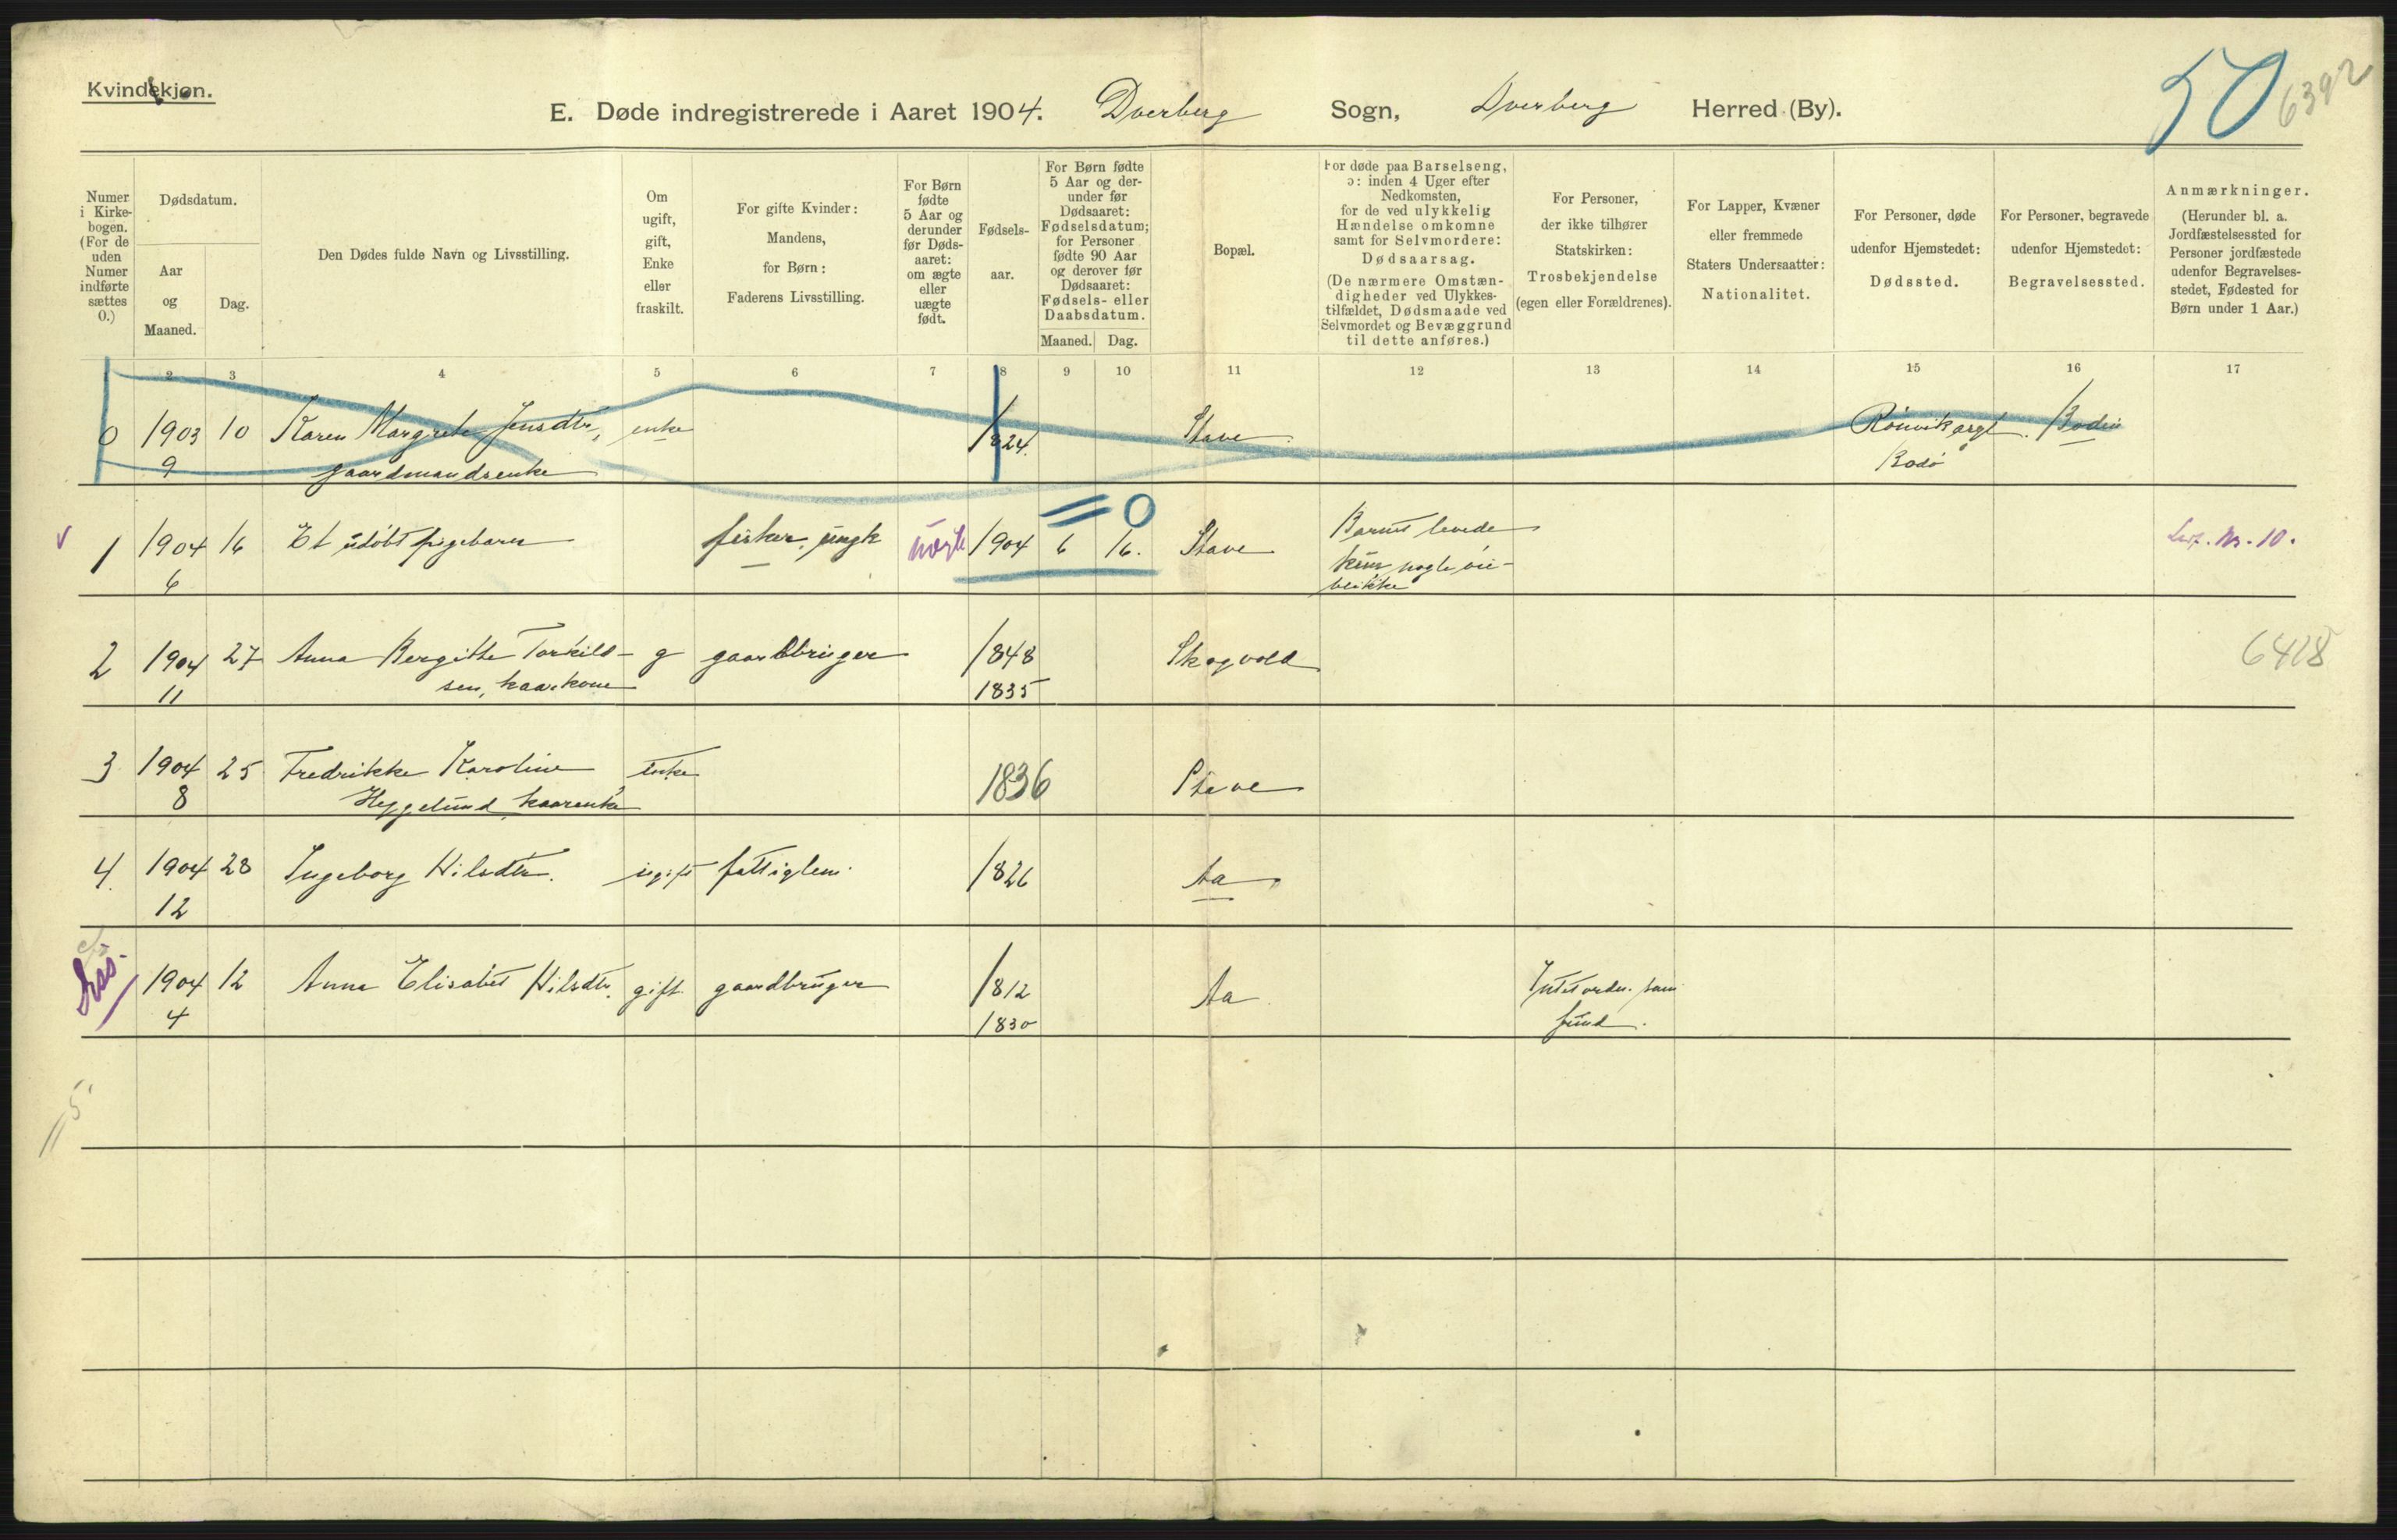 Kvindekjøn.
E. Døde indregistrerede i Aaret 1904. Dverberg Sogn, Dverberg Herred (By).
50
6392
Numer i Kirke-bogen. (For de uden Numer indførte sættes 0.)
Dødsdatum.
Aar og Maaned.
Dag.
Den Dødes fulde Navn og Livsstilling.
Om ugift, gift, Enke eller fraskilt.
For gifte Kvinder: Mandens, for Børn: Faderens Livsstilling.
For Børn fødte 5 Aar og derunder før Døds-aaret: om ægte eller uægte født.
Fødsels-aar.
For Børn fødte 5 Aar og der-under før Dødsaaret: Fødselsdatum; for Personer fødte 90 Aar og derover før Dødsaaret: Fødsels- eller Daabsdatum.
Maaned. Dag.
Bopæl.
For døde paa Barselseng, ɔ: inden 4 Uger efter Nedkomsten, for de ved ulykkelig Hændelse omkomne samt for Selvmordere: Dødsaarsag. (De nærmere Omstæn-digheder ved Ulykkes-tilfældet, Dødsmaade ved Selvmordet og Bevæggrund til dette anføres.)
For Personer, der ikke tilhører Statskirken: Trosbekjendelse (egen eller Forældrenes).
For Lapper, Kvæner eller fremmede Staters Undersaatter: Nationalitet.
For Personer, døde udenfor Hjemstedet: Dødssted.
For Personer, begravede udenfor Hjemstedet: Begravelsessted.
Anmærkninger. (Herunder bl. a. Jordfæstelsessted for Personer jordfæstede udenfor Begravelses-stedet, Fødested for Børn under 1 Aar.)
2 3 4 5 6 7 8 9 10 11 12 13 14 15 16 17
0 1903 10 Karen Margrete Jensdtr, enke 1824. Stave Rönvik asyl. Bodin
9 gaardmandsenke Bodö
= 0
v 1 1904 16 Et udöbt pigebarn fisker, ungk uægte 1904 6 16. Stave Barnet levede Lev. Nr. 10.
6 kun nogle öie-
blikke
2 1904 27 Anna Bergitte Torkild- g gaardbruger 1848 Skogvold 6418
11 sen, kaarkone 1835
3 1904 25 Fredrikke Karoline enke 1836 Stave
8 Heggelund, kaarenke
4. 1904 28 Ingeborg Nilsdtr. ugift fattiglem 1826 Aa
12
Diss. 1904 12 Anna Elisabet Nilsdtr. gift gaardbruger 1812 Aa Intet ordn. sam
4 1830 fund.
5